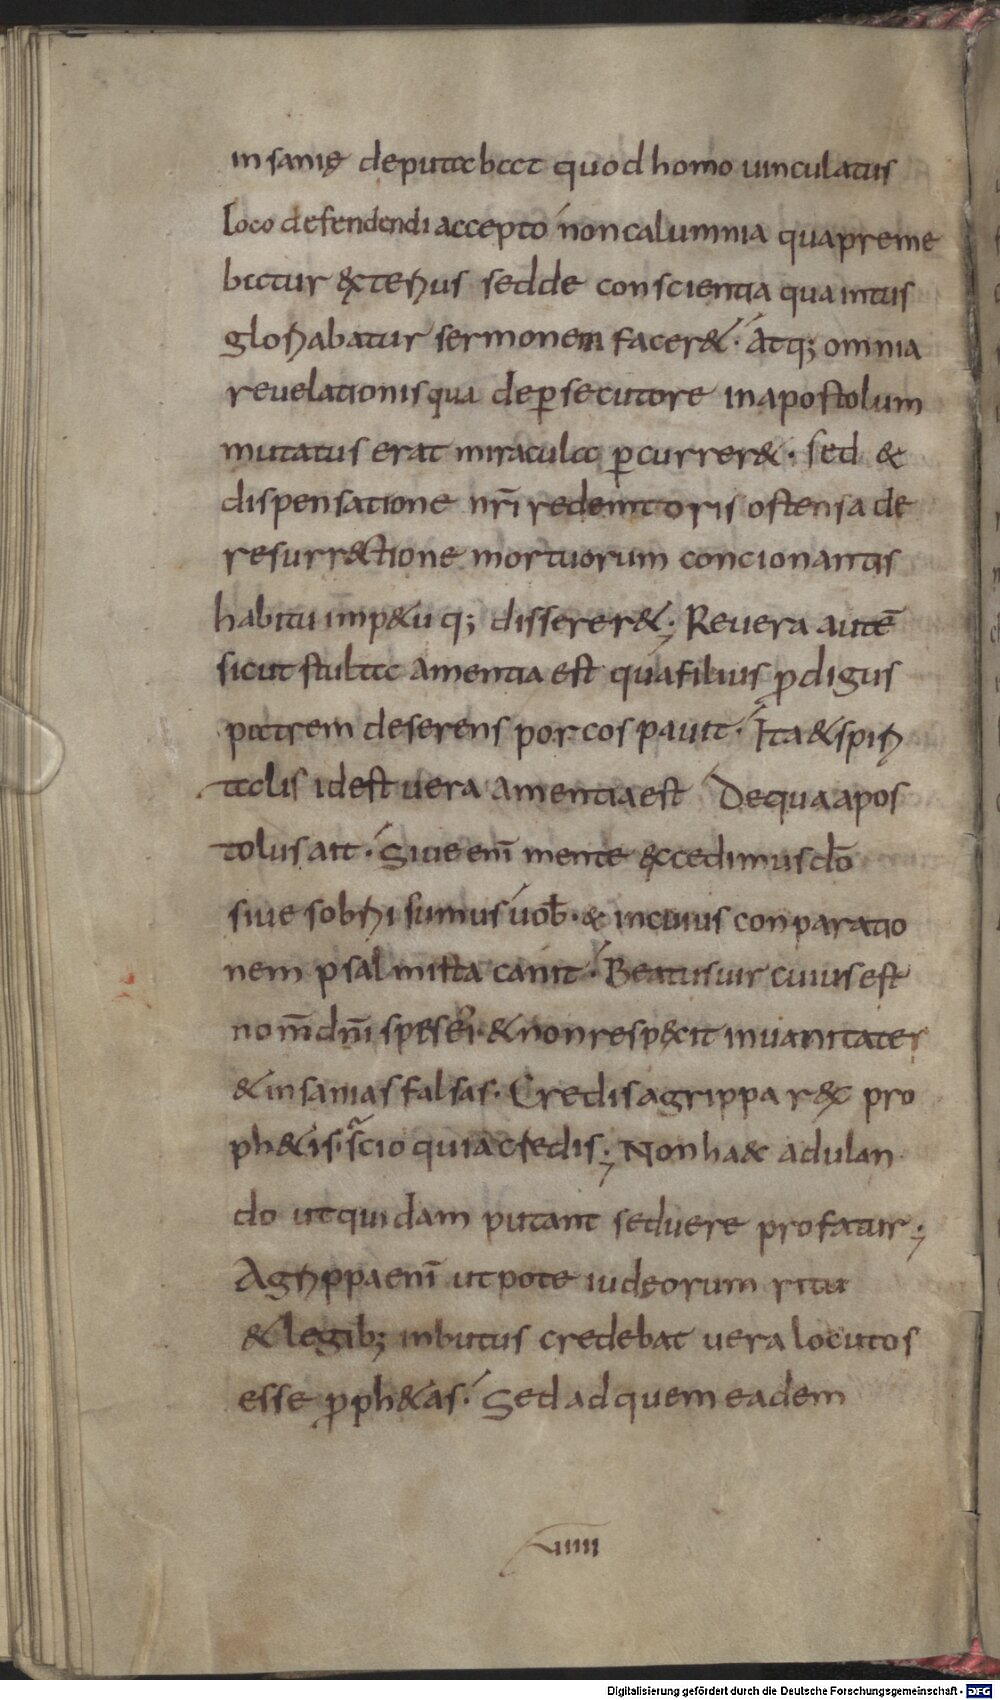 insanię deputabat quod homo uinculatus
loco defendendi accepto non calumnia qua preme
batur exterius sed de conscientia qua intus
gloriabatur sermonem facer&. Atq; omnia
reuelationis qua de p̲secutore in apostolum
mutatus erat miracula p̲currer&. sed &
dispensatione nr̄i redemtoris ostensa de
resurr&tione mortuorum concionantis
habitu imp&uq; disserer&; Reuera autē
sicut stulta amentia est qua filius ꝓdigus
patrem deserens porcos pauit. Ita & spiri
talis id est uera amentia est De qua apos
tolus ait. Siue enī mente excedimus dō
siue sobrii sumus uob̄. & in cuius conparatio
nem psalmista canit. Beatus uir cuius est
nom̄ dn̄i spes ei. & non respexit in uanitates
& insanias falsas. Credis agrippa rex pro
ph&is. scio quia credis; Non haec adulan
do ut quidam putant seduere profatur;
Agrippa enī utpote iudeorum ritu
& legib; inbutus credebat uera locutos
esse ꝓph&as. Sed ad quem eadem
uiiii
Digitalisierung gefördert durch die Deutsche Forschungsgemeinschaft - DFG